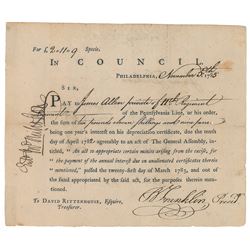 For £ 2 - 11 - 9 Specie.
IN COUNCIL
PHILADELPHIA, November 1785
SIR,
PAY to James Allen private of Regiment
of the Pennsylvania Line, or his order,
the sum of two pounds eleven shillings and nine pence
being one year's interest on his depreciation certificate, due the tenth
day of April 1782 agreeably to an act of The General Assembly, intitled,
"An act to appropriate certain monies arising from the excise, for the
payment of the annual interest due on unalienated certificates therein
mentioned," passed the twenty-first day of March 1783, and out of the
fund appropriated by the said act, for the purposes therein mentioned.
B Franklin, Presid't
To DAVID RITTENHOUSE, Esquire,
Treasurer.